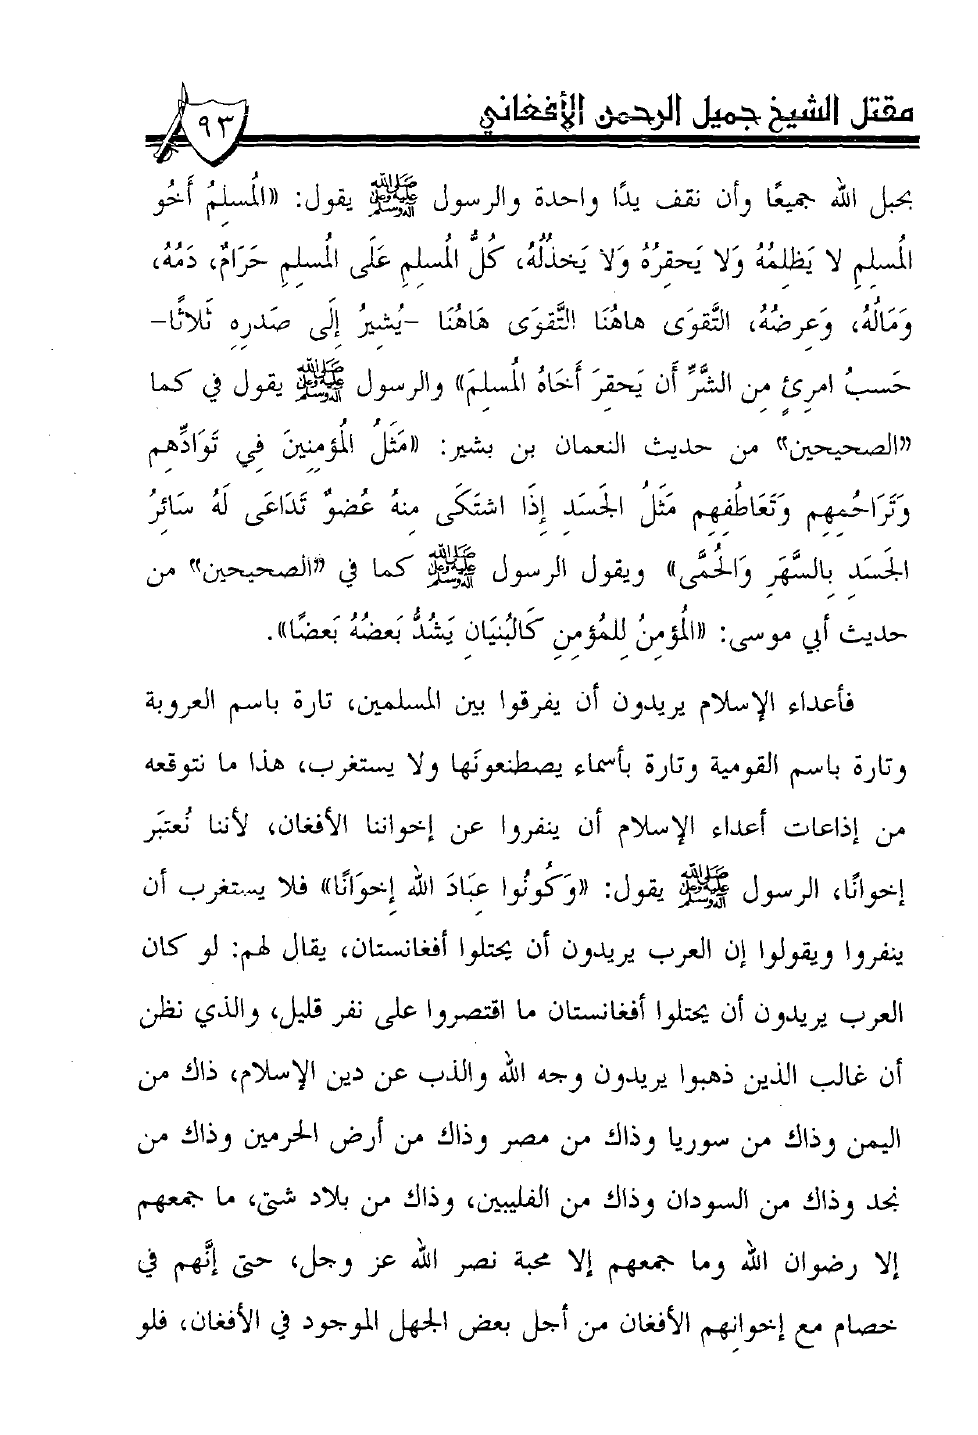 مقتل الشيخ جميل الرحمن الأفغاني
٩٣
بحبل الله جميعًا وأن نقف يدًا واحدة والرسول ﷺ يقول: «المُسلِمُ أَخُو
المُسلِمِ لا يَظلِمُهُ وَلا يَحقِرُهُ وَلا يَخذُلُهُ، كُلُّ المُسلِمِ عَلَى المُسلِمِ حَرَامٌ، دَمُهُ،
وَمَالُهُ، وَعِرضُهُ، التَّقوَى هاهُنَا التَّقوَى هَاهُنَا -يُشِيرُ إِلَى صَدرِهِ ثَلاثًا-
حَسبُ امرِئٍ مِن الشَّرِّ أَن يَحقِرَ أَخَاهُ المُسلِمَ» والرسول ﷺ يقول في كما
«الصحيحين» من حديث النعمان بن بشير: «مَثَلُ المُؤمِنِينَ فِي تَوَادِّهِم
وَتَرَاحُمِهِم وَتَعَاطُفِهِم مَثَلُ الجَسَدِ إِذَا اشتَكَى مِنهُ عُضوٌ تَدَاعَى لَهُ سَائِرُ
الجَسَدِ بِالسَّهَرِ وَالحُمَّى» ويقول الرسول ﷺ كما في «الصحيحين» من
حديث أبي موسى: «المُؤمِنُ لِلمُؤمِنِ كَالبُنيَانِ يَشُدُّ بَعضُهُ بَعضًا».
فأعداء الإسلام يريدون أن يفرقوا بين المسلمين، تارة باسم العروبة
وتارة باسم القومية وتارة بأسماء يصطنعونَها ولا يستغرب، هذا ما نتوقعه
من إذاعات أعداء الإسلام أن ينفروا عن إخواننا الأفغان، لأننا نُعتبَر
إخوانًا، الرسول ﷺ يقول: «وَكُونُوا عِبَادَ الله إِخوَانًا» فلا يستغرب أن
ينفروا ويقولوا إن العرب يريدون أن يحتلوا أفغانستان، يقال لهم: لو كان
العرب يريدون أن يحتلوا أفغانستان ما اقتصروا على نفر قليل، والذي نظن
أن غالب الذين ذهبوا يريدون وجه الله والذب عن دين الإسلام، ذاك من
اليمن وذاك من سوريا وذاك من مصر وذاك من أرض الحرمين وذاك من
نجد وذاك من السودان وذاك من الفليبين، وذاك من بلاد شتى، ما جمعهم
إلا رضوان الله وما جمعهم إلا محبة نصر الله عز وجل، حتى إنَّهم في
خصام مع إخوانِهم الأفغان من أجل بعض الجهل الموجود في الأفغان، فلو